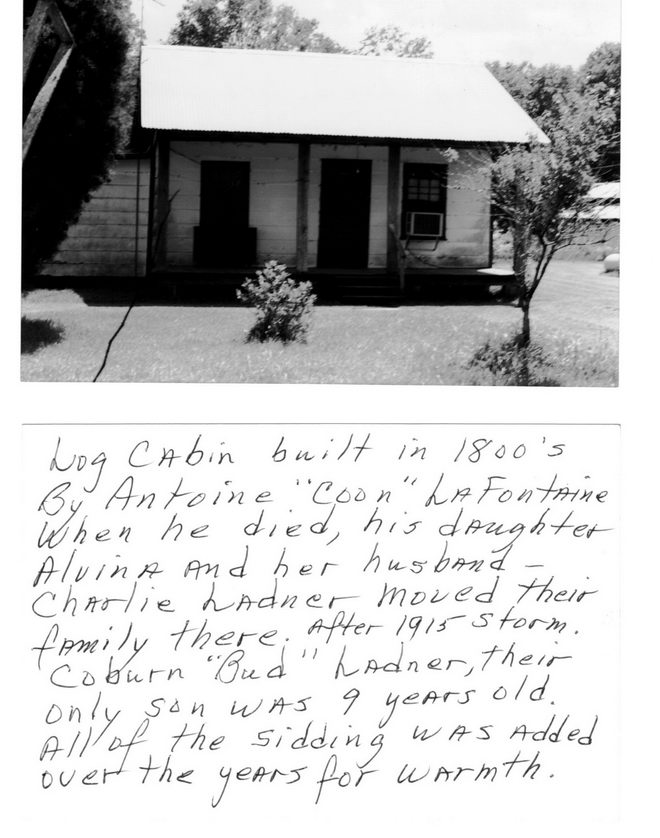 Log Cabin built in 1800's
By Antoine "Coon" LaFontaine
When he died, his daughter
Alvina and her husband -
Charlie Ladner moved their
family there. After 1915 storm.
Coburn "Bud" Ladner, their
only son was 9 years old.
All of the sidding was added
over the years for warmth.